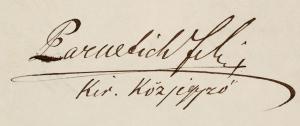 Parnetich Feli
Kir. Közjegyző